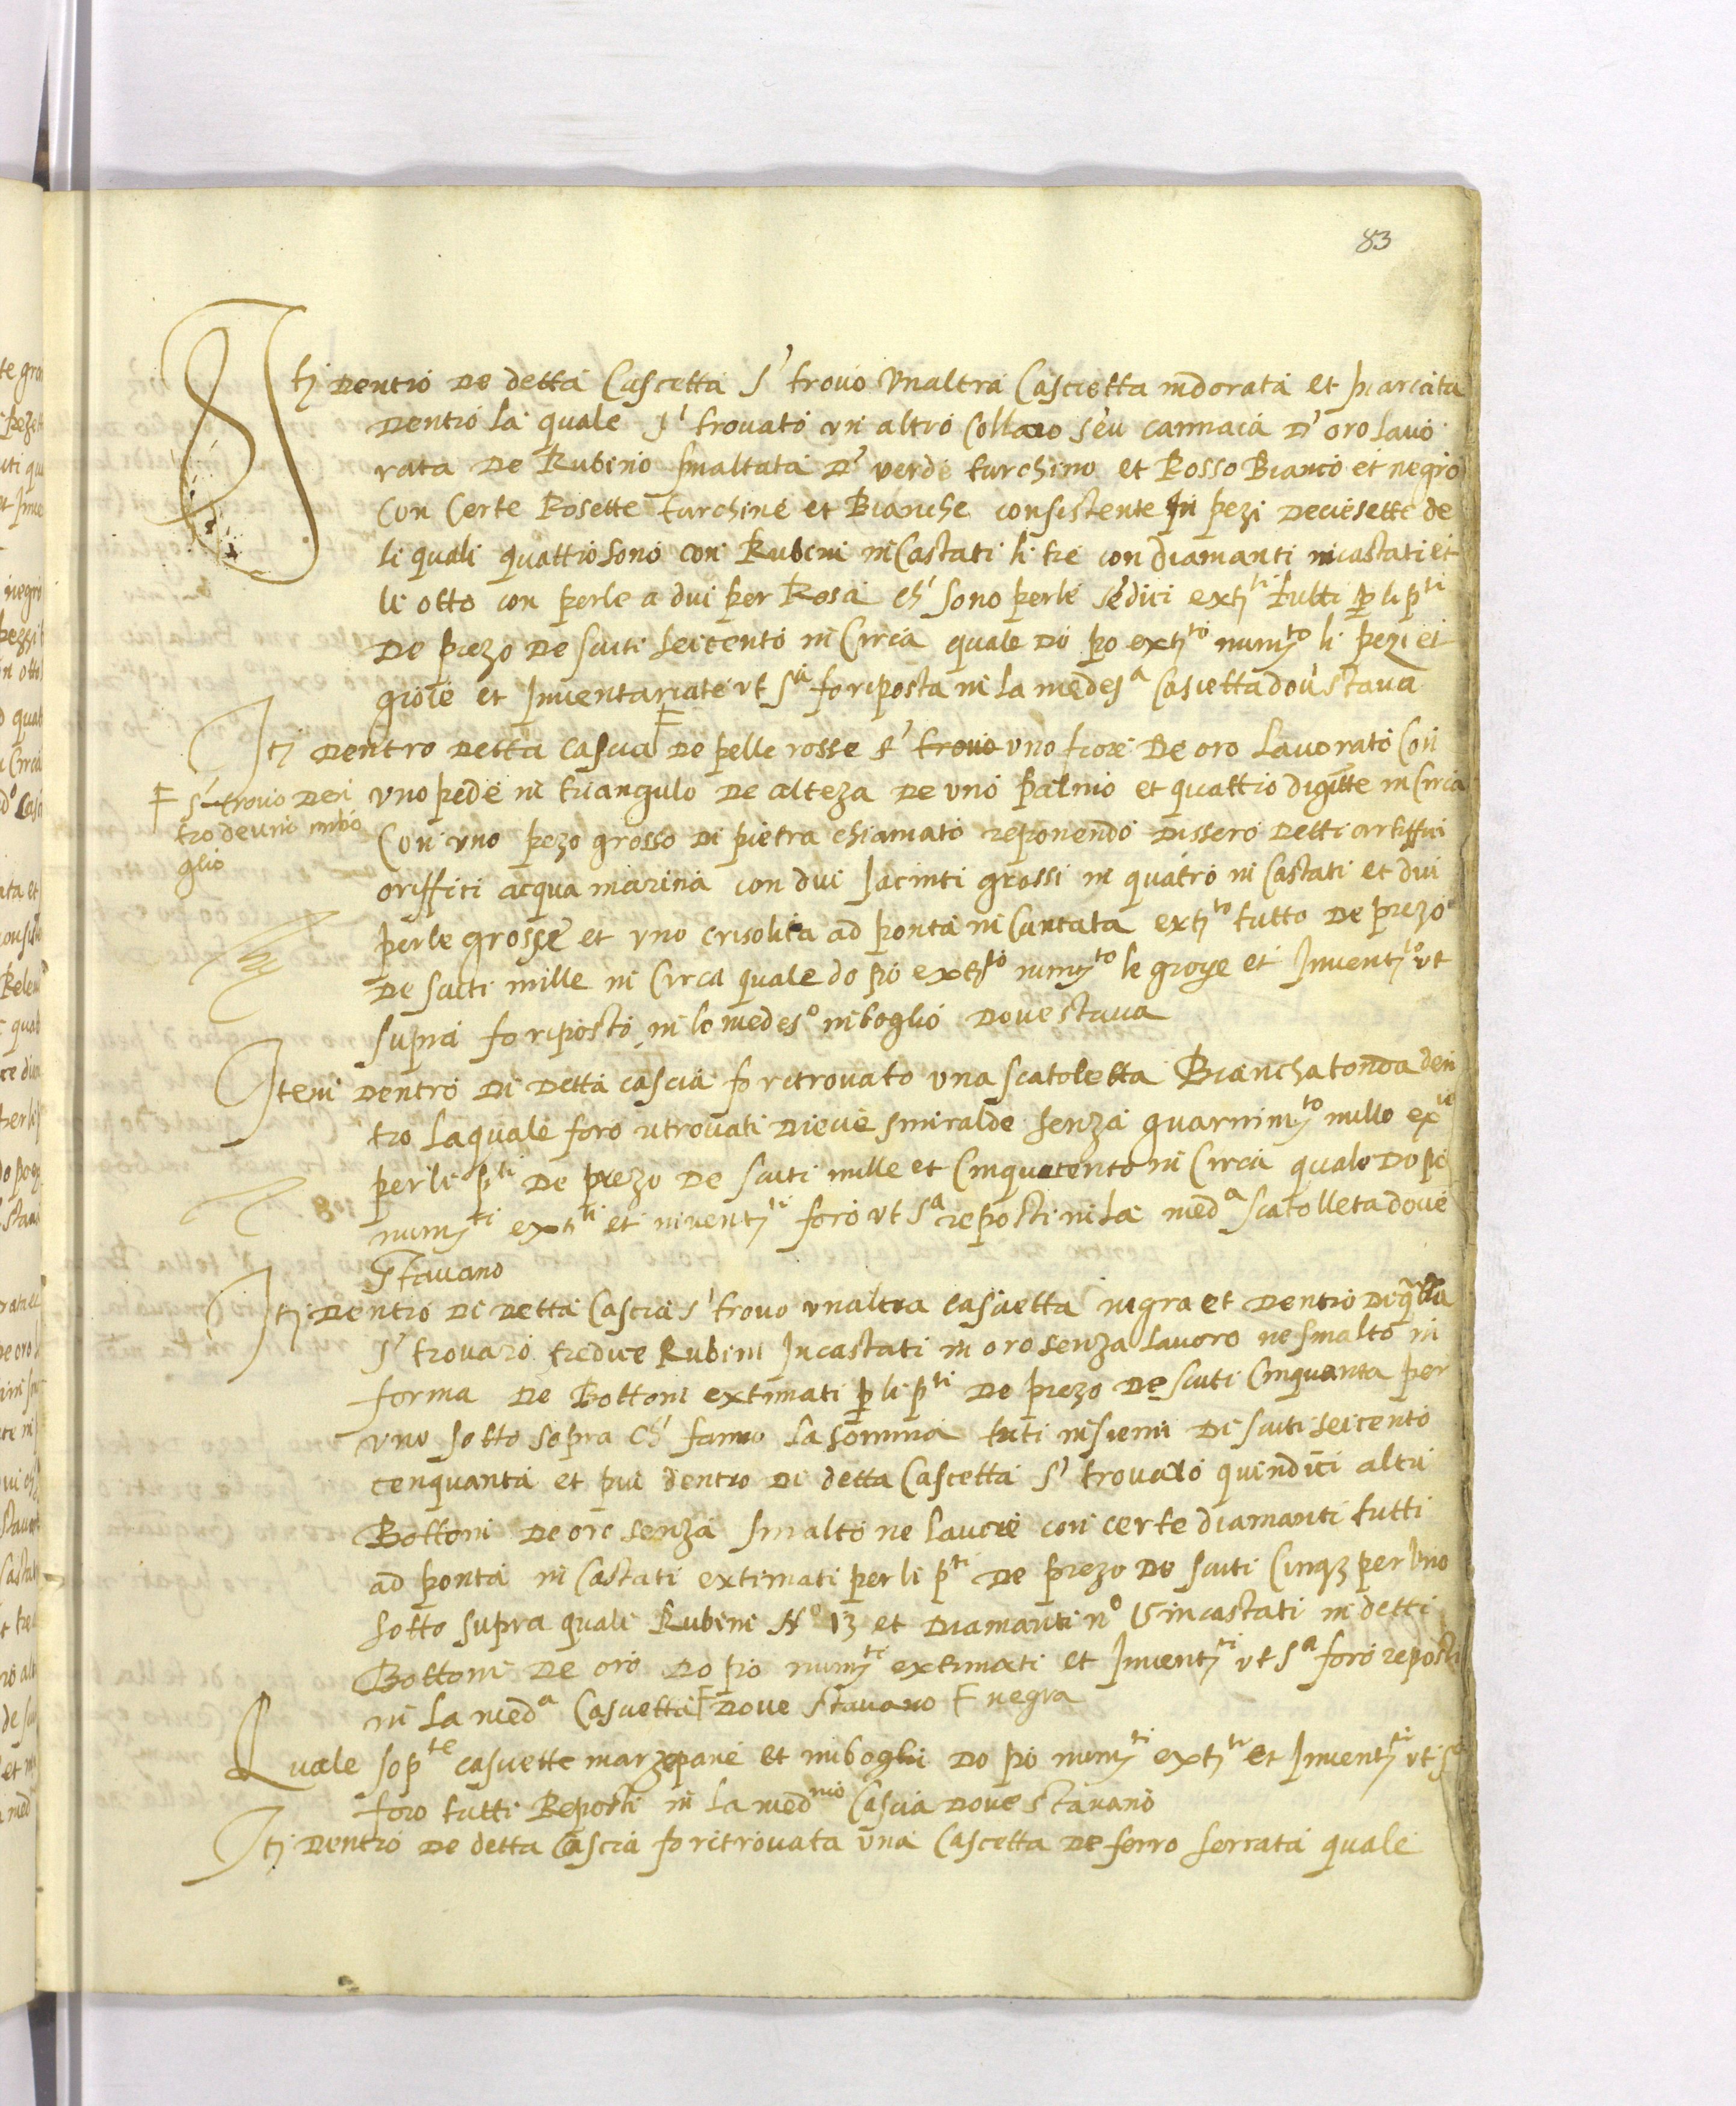 83
Itẽ dentro de detta Cascetta s' trovo unaltra Cascietta indorata et marcata
dentro la quale s' trovato un altro Collaro seu cannaca d' oro lavo
rata de Rubino smaltata d' verde turchino et Rosso Bianco et negro
con certe Rosette turchine et Bianche consistente in pezi deciesette de
li quali quattro sono con Rubini incastati li tre con diamanti incastati et
li otto con perle a dui per Rosa ch' sono perle sedici extti tutti p li pti
de prezo de scuti seicento in circa quale do po extto numto li pezi et
gioie et Inventariate ut sa fo riposta in la medesa Cascietta dou stava
Itẽ dentro detta cascia F de pelle rosse s' trovo uno fiore de oro lavorato con
F s' trovo den
tro de uno inbo
glio
uno pede in triangulo de alteza de uno palmo et quattro digitte in circa
Con uno pezo grosso di pietra chiamato reponendo dissero detti artiffici
oriffici acqua marina con dui Jacinti grossi in quatro incastati et dui
perle grosse et uno crisolita ad ponta incantata extto tutto de prezo
de scuti mille in circa quale do po extto numto le gioye et Inventto ut
supra fo riposto in lo medeso inboglio dove stava
Item dentro di detta cascia fo ritrovato una scatoletta Biancha tonda den
tro laquale foro ritrovati diece smiralde senza guarnimto nullo exte
per li pti de prezo de scuti mille et cinquecento in circa quale do po
numti extti et inventti foro ut sa reposti in la meda scatolleta dove
stavano
Itẽ dentro di detta Cascia s' trovo unaltra cascietta nigra et dentro di qlla
s' trovaro tredice Rubini Incastati in oro senza lavoro ne smalto in
forma de Bottoni extimati p li pti de prezo de scuti cinquanta per
uno sotto sopra ch' fanno la somma tuti insiemi di scuti seicento
cenquanta et piu dentro di detta Cascetta s' trovaro quindici altri
Bottoni de oro senza smalto ne lavore con certe diamanti tutti
ad ponta incastati extimati per li pti de prezo de scuti cinq3 per uno
sotto supra quali Rubini No 13 et Diamanti no 15 incastati in detti
Bottoni de oro do po numti extimati et Inventti ut sa foro reposti
in la meda Cascietta F dove stavano F negra
Quale sopte casciette marzepane et inbogli do po numti extti et Inventti ut sa
foro tutti Reposti in la medmo Cascia dove stavano
Itẽ dentro de detta Cascia fo ritrovata una Cascetta de ferro serrata quale